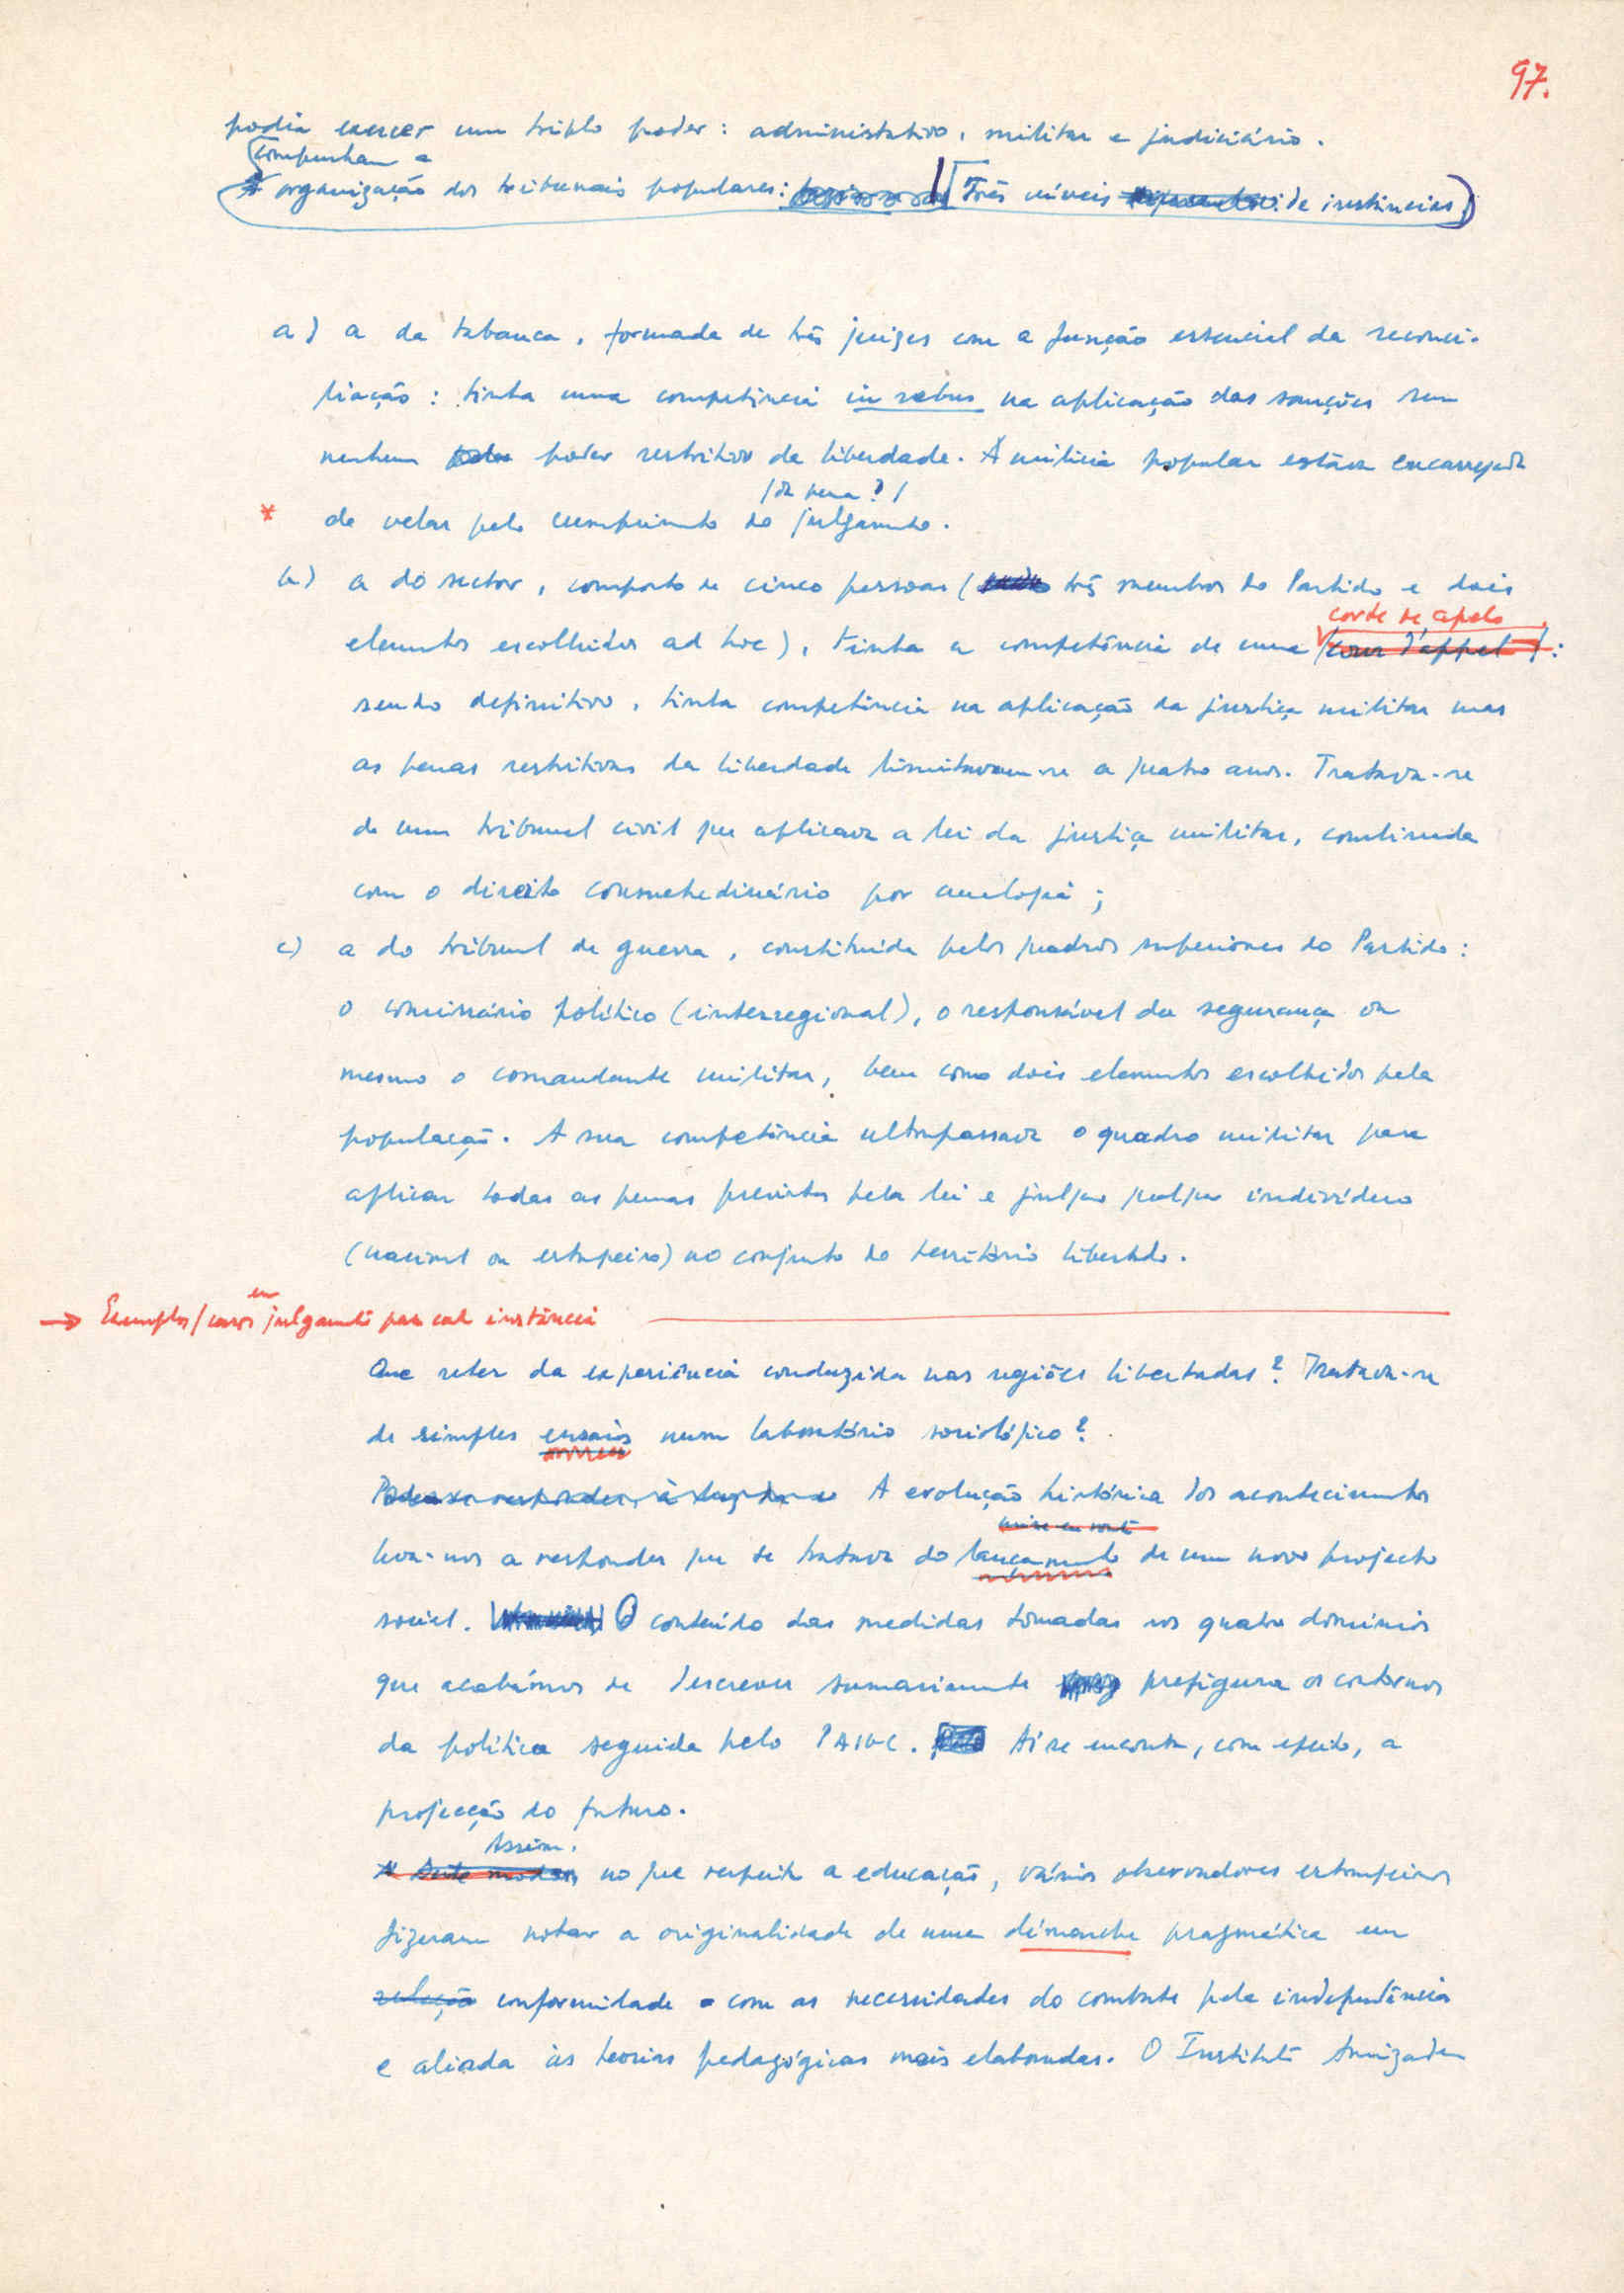 97.
podia exercer um triplo poder: administrativo, militar e judiciário.
Compunham a
A organização dos tribunais populares: Três níveis de instâncias
a) a da tabanca, formada de três juizes com a função essencial da reconci-
liação: tinha uma competência in rebus na aplicação das sanções sem
nenhum poder poder restritivo da liberdade. A milicia popular estava encarregada
/da pena?/
* de velar pelo cumprimento do julgamento.
b) a do sector, composto de cinco pessoas (três membros do Partido e dois
corte de apelo
elementos escolhidos ad hoc), tinha a competência de uma /cour d'appel/:
sendo definitivo, tinha competência na aplicação da justiça militar mas
as penas restritivas da liberdade limitavam-se a quatro anos. Tratava-se
de um tribunal civil que aplicava a lei da justiça militar, combinada
com o direito consuetudinário por analogia;
c) a do tribunal de guerra, constituida pelos quadros superiores do Partido:
o comissário político (interregional), o responsável da segurança ou
mesmo o comandante militar, bem como dois elementos escolhidos pela
população. A sua competência ultrapassava o quadro militar para
aplicar todas as penas previstas pela lei e julgar qualquer individuo
(nacional ou estrangeiro) no conjunto do território libertado.
em
→ Exemplos/casos julgamento por cada instância
Que reter da experiência conduzida nas regiões libertadas? Tratava-se
de simples ensaios num laboratório sociológico?
A evolução histórica dos acontecimentos
mise en route
leva-nos a responder que se tratava do lançamento de um novo projecto
social. O conteúdo das medidas tomadas nos quatro domínios
que acabámos de descrever sumariamente prefigura os contornos
da política seguida pelo PAIGC. Aí se encontra, com efeito, a
projecção do futuro.
Assim,
Deste modo no que respeita a educação, vários observadores estrangeiros
fizeram notar a originalidade de uma démarche pragmática em
relação conformidade com as necessidades do combate pela independência
e aliada às teorias pedagógicas mais elaboradas. O Instituto Amizade